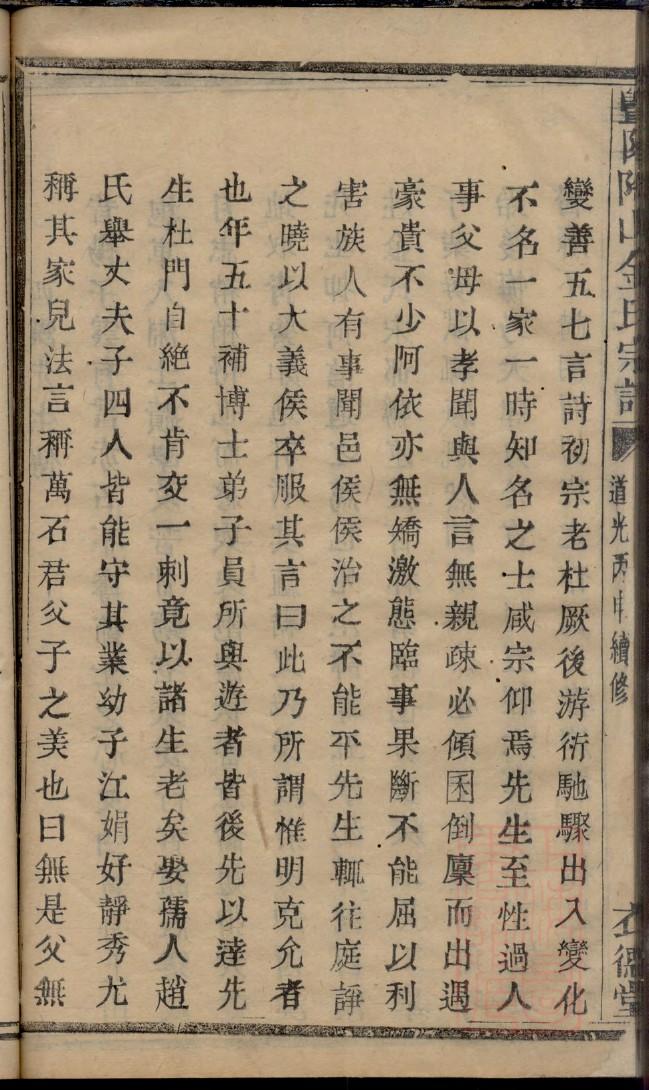 暨陽陶山金氏宗譜
道光丙申續修
變善五七言詩初宗老杜厥後游衍馳驟出入變化
不名一家一時知名之士咸宗仰焉先生至性過人
事父母以孝聞與人言無親疎必傾囷倒廩而出遇
豪貴不少阿依亦無矯激態臨事果斷不能屈以利
害族人有事聞邑侯侯治之不能平先生輒往庭諍
之曉以大義侯卒服其言曰此乃所謂惟明克允者
也年五十補博士弟子員所與遊者皆後先以達先
生杜門自絕不肯交一刺竟以諸生老矣娶孺人趙
氏舉丈夫子四人皆能守其業幼子江娟好靜秀尤
稱其家兒法言稱萬石君父子之美也曰無是父無